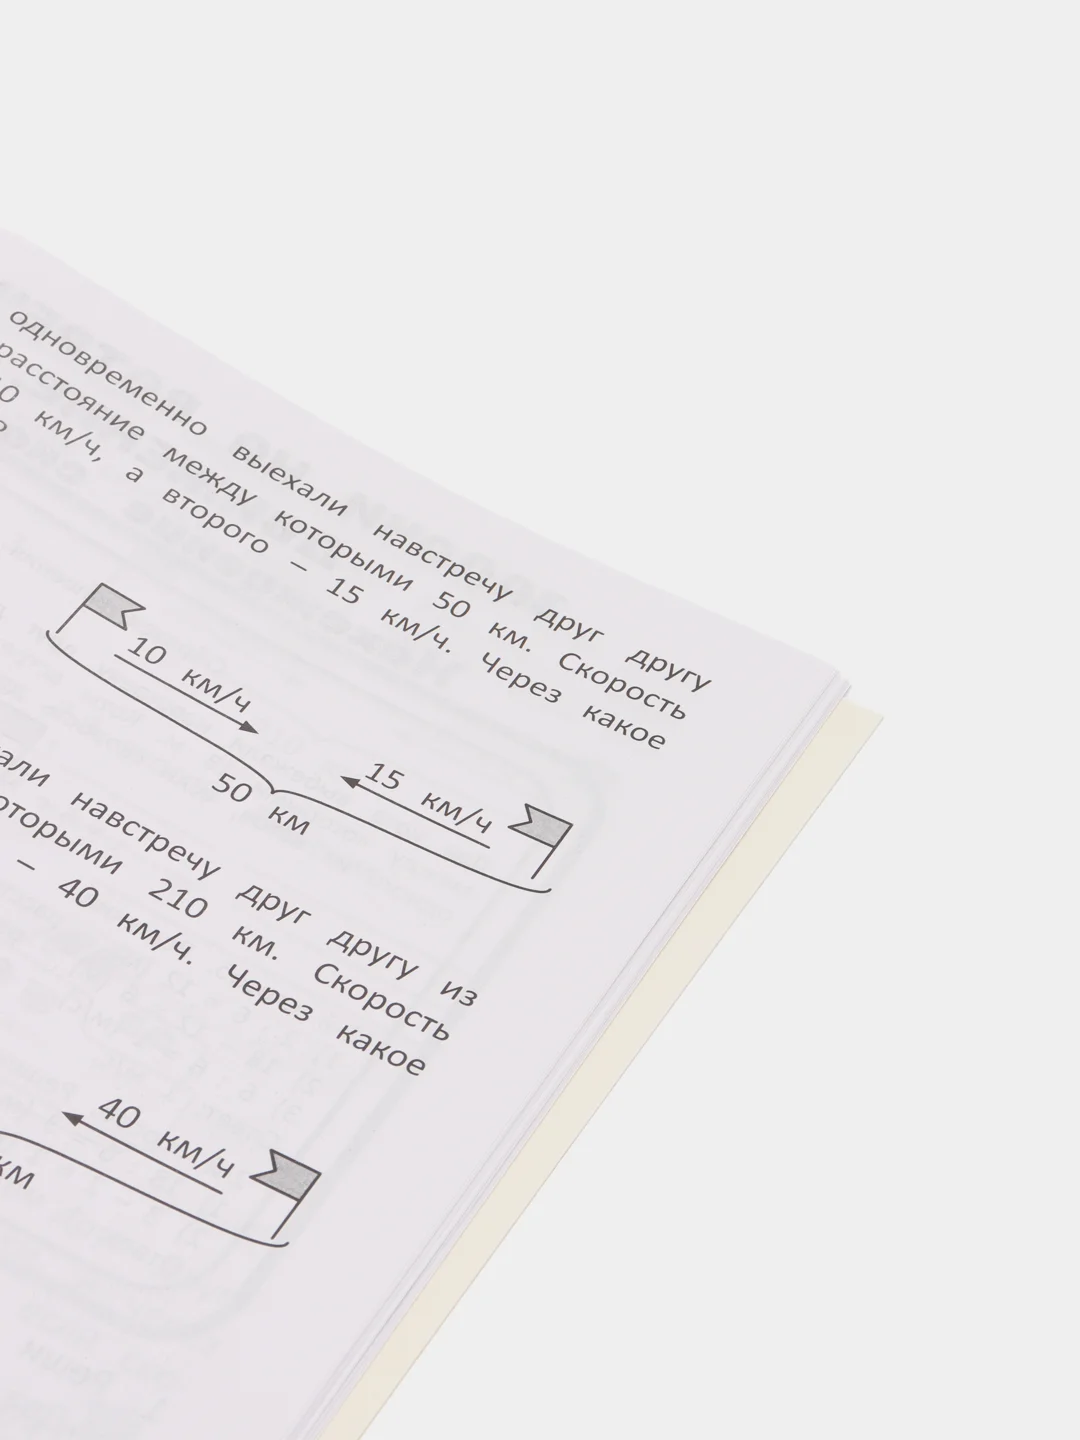 одновременно выехали навстречу друг другу
расстояние между которыми 50 км. Скорость
км/ч, а второго – 15 км/ч. Через какое
10 км/ч
15 км/ч
50 км
навстречу друг другу из
которыми 210 км. Скорость
– 40 км/ч. Через какое
40 км/ч
км